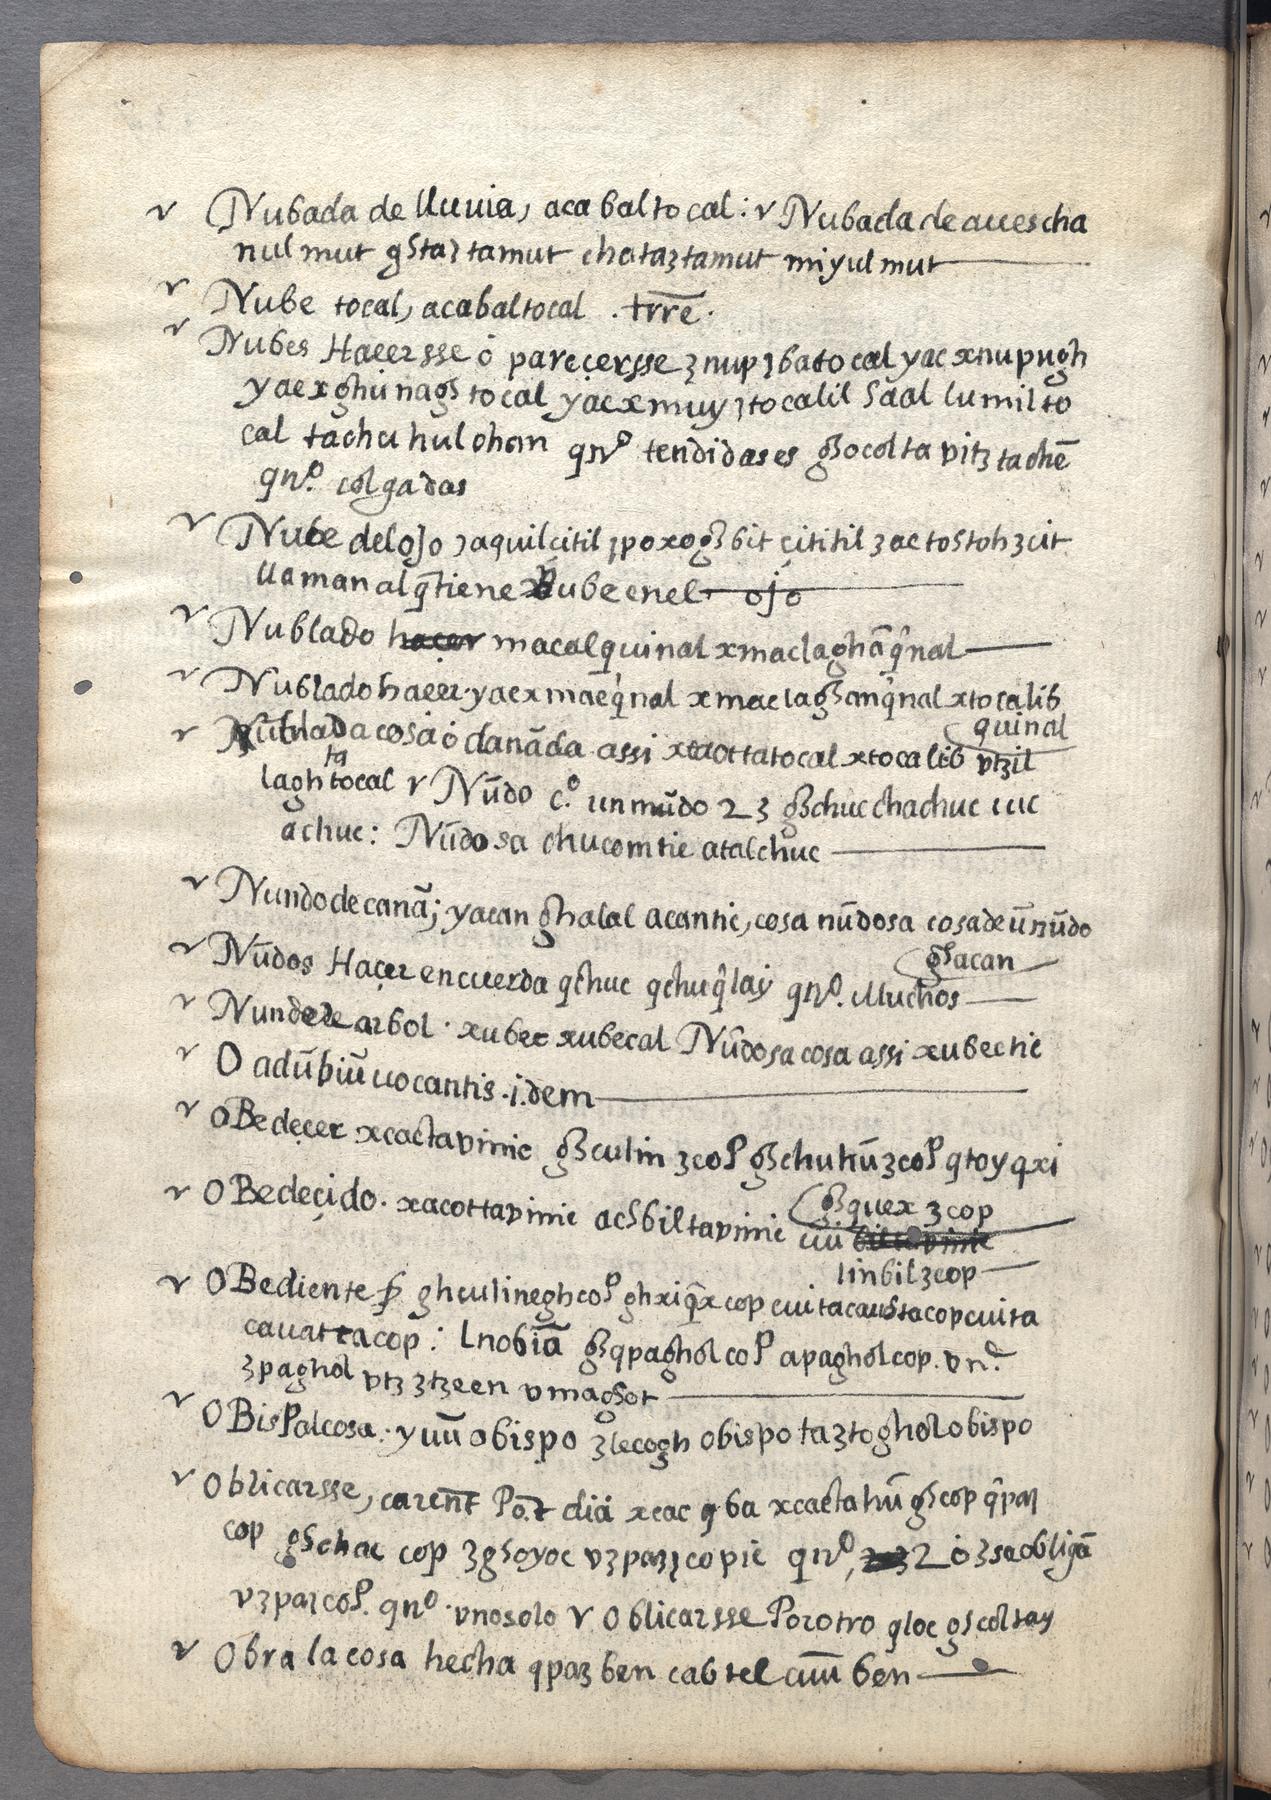 v Nubada de lluuia, acabaltocal: v Nubada de aues cha
nul mut ghtaztamut chataztamut miyul mut
v Nube tocal, acabaltocal . trrē.
v Nubes Haeersse ó pareçersse ʒnupʒbatocal yac xnupugh
yaex ghūnagh tocal yaexmuyʒtocalil Saal lumil to
cal tachu hul chan qnᵒ tendidas es ghocol ta vitʒ tachē
qnᵒ. colgadas
v Nube del ojo ʒaquilçitil ʒpoxogh bit çititil ʒac tostoh ʒcit
llaman al q̄ tiene nube en el ojo
v Nublado haçer macalquinal xmaclaghāq̄nal
v Nublado haeer. yaexmacq̄nal xmaclaghanq̄nal xtocalib
quinal
v Nublada cosa ó danāda assi xcacttatocal xtocalib vtʒil
lagh ta tocal v Nūdo c.ᵒ un nūdo 2 ʒ ghchuc chachuc cuc
achuc: Nūdosa chucomtic atalchuc
v Nundo de canā; yacan ghalal acantic, cosa nūdosa cosa de ū nūdo
ghacan
v Nūdos Haçer en cuerda qchuc qchuq̄lay qnᵒ. Muchos
v Nundo de arbol. xubec xubecal Nūdosa cosa assi xubectic
v O adūbiū uocantis .i.dem
v oBedeçer xcactavinic ghculin ʒcop ghchuhūʒcop qtoy qxi
v OBedeçido. xacottavinic achbiltavinic ghquex ʒcop
cuū biltavinic
linbilʒcop
v OBediente ghculineghcop ghxiq̄xcop cuitacaustacopcuita
cauattacop: Inobiā ghqpagholcop apagholcop. vnᵈ.
ʒpaghol vtʒ ʒtʒeen vmaghot
v OBispal cosa. yuū obispo ʒlecogh obispo taʒtogholobispo
v Oblicarsse, carent Po.t diā xcac qba xcactahū ghcop q̄paʒ
cop ghchac cop ʒghoyoc vʒpaʒʒcopic qnᵒ, 2 ó ʒ sa obligā
vʒpaʒcop. qnᵒ. vnosolo v Oblicarsse Porotro qloc ghcoltay
v Obra la cosa hecha qpaʒ ben cabtel cuū ben